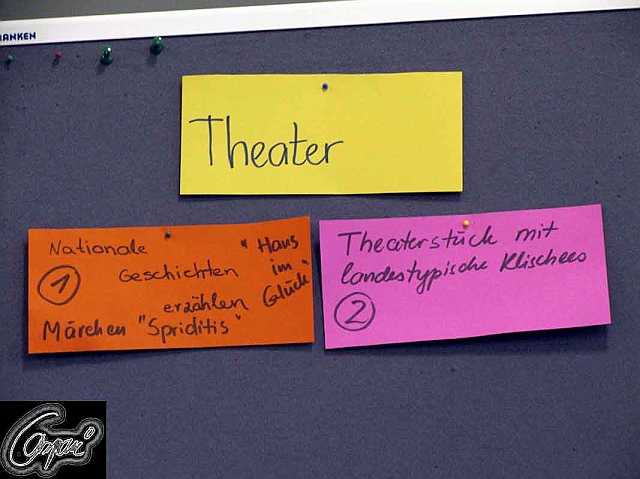 RANKEN
Theater
Nationale
① Geschichten
erzählen
Märchen "Spriditis"
"Hans
im
Glück"
Theaterstück mit
landestypische Klischees
②